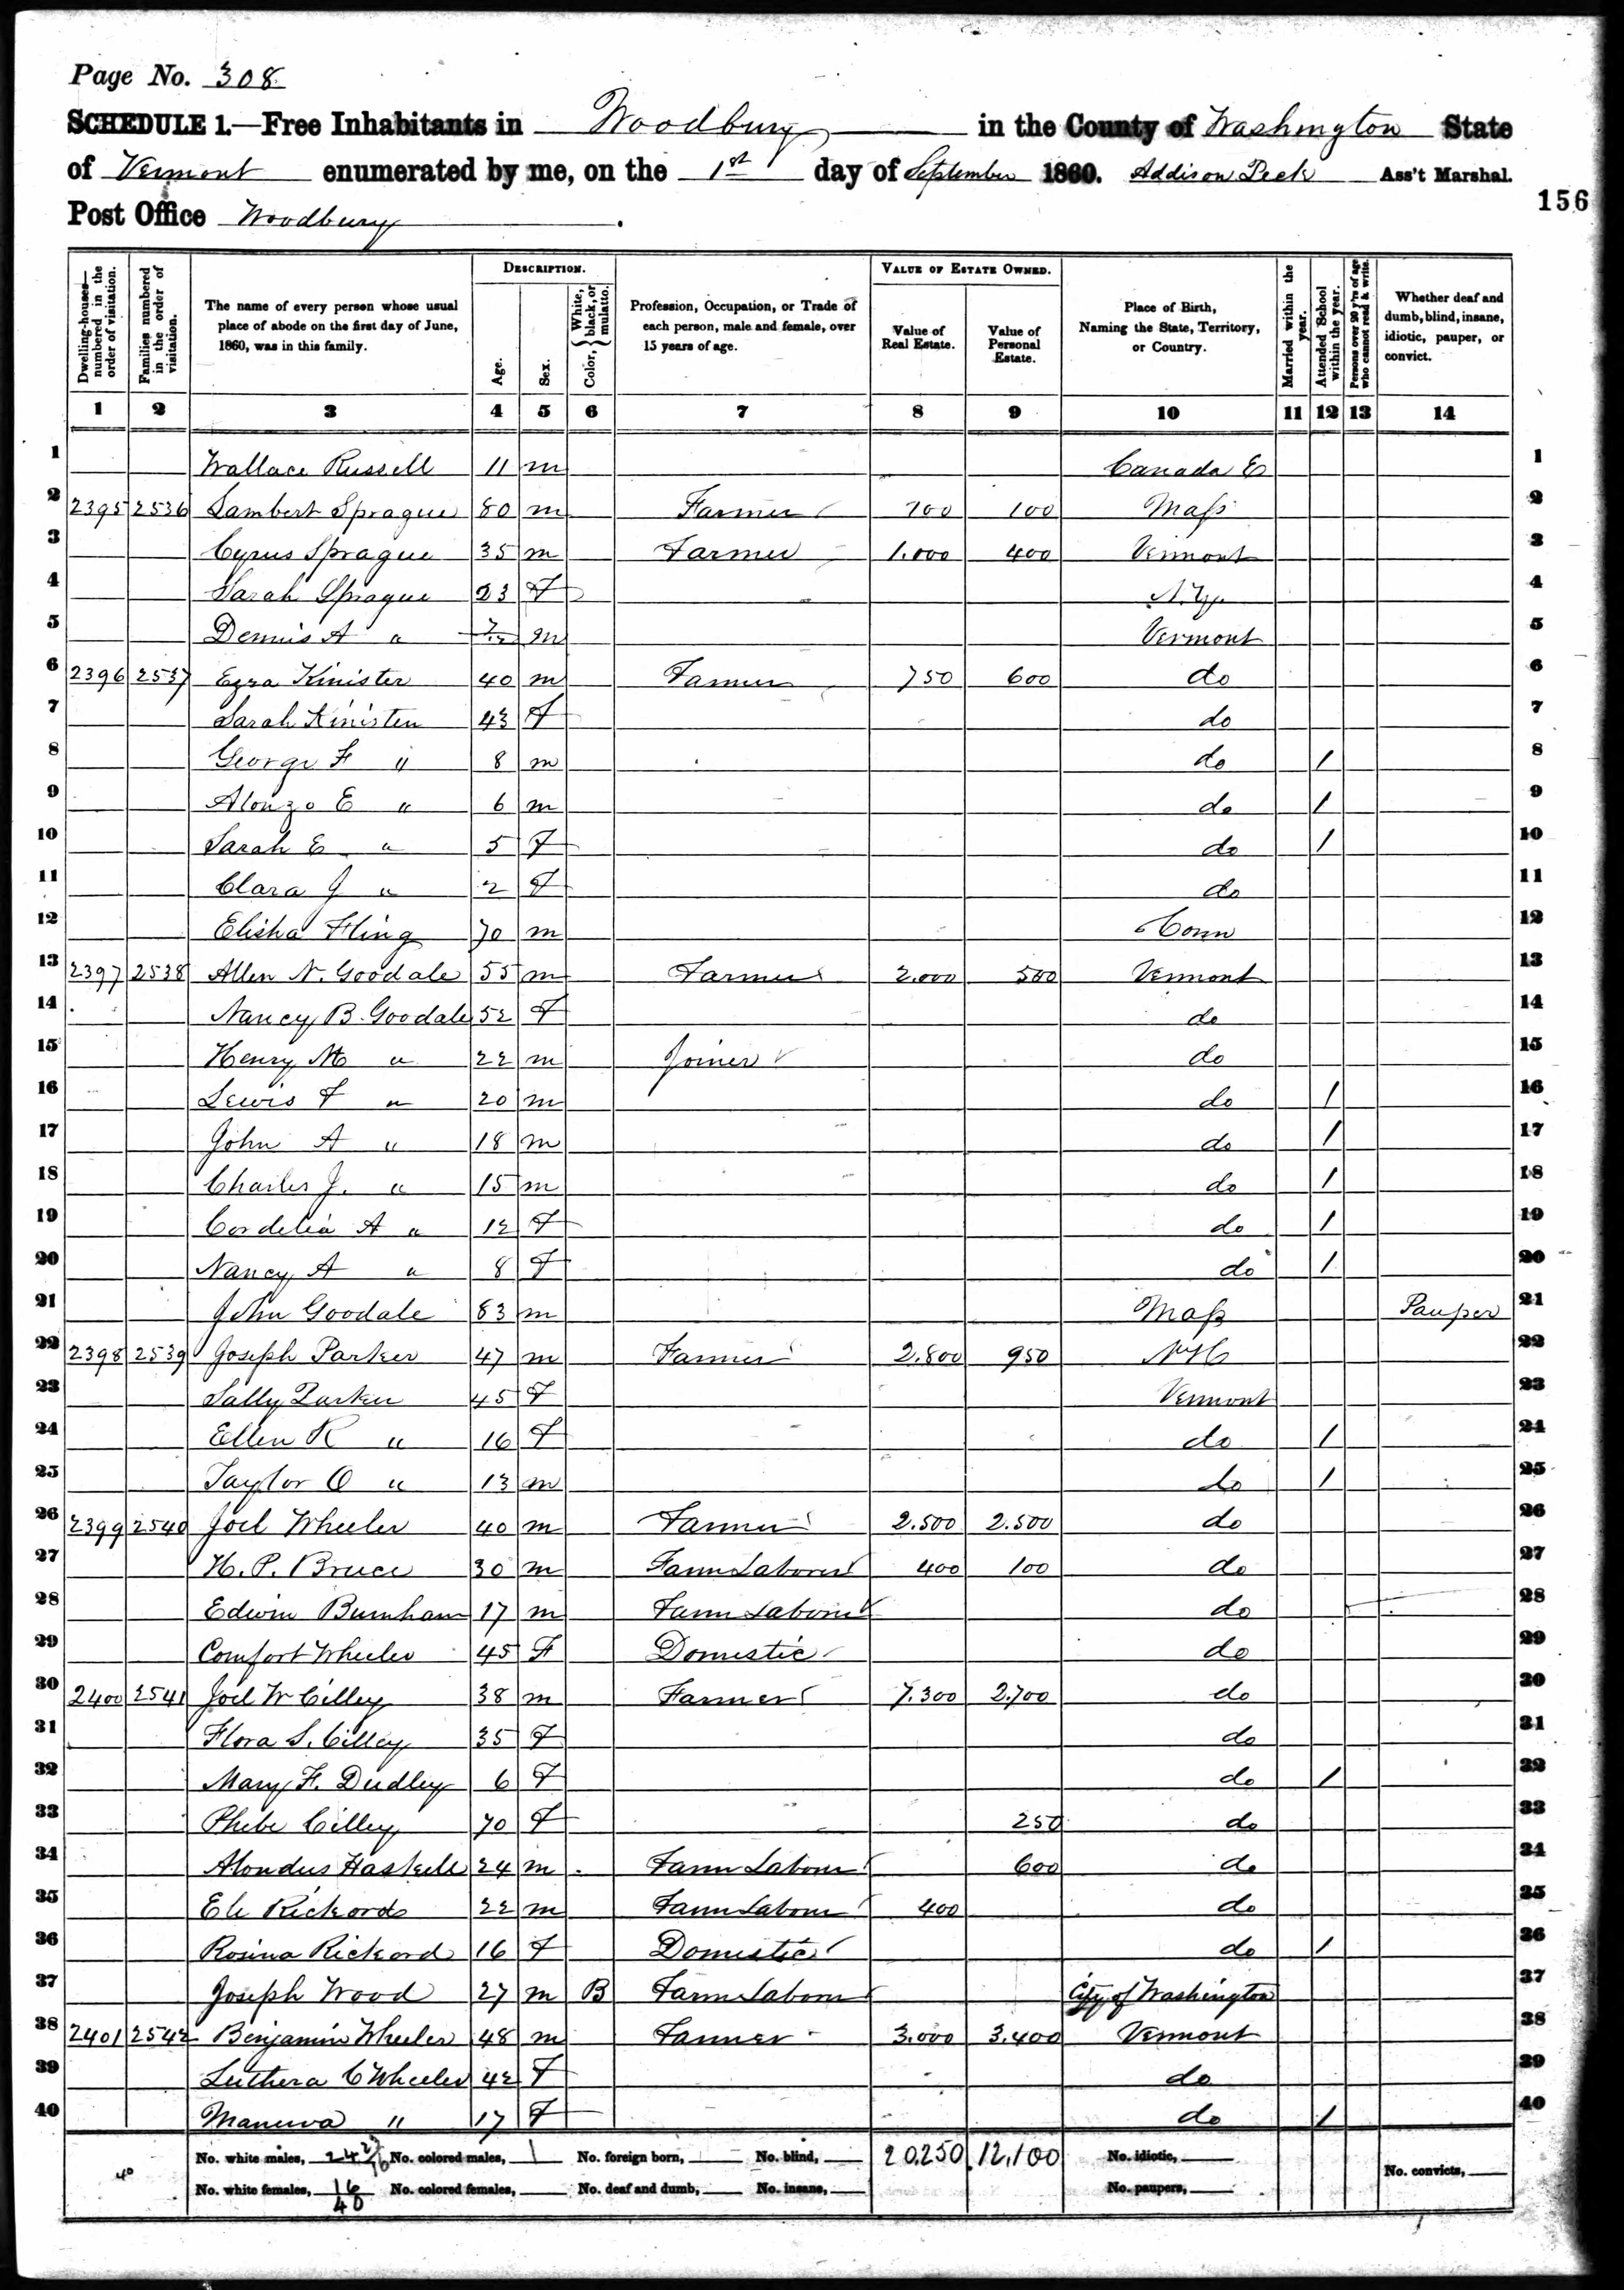 Page No. 308
SCHEDULE 1.—Free Inhabitants in Woodbury in the County of Washington State
of Vermont enumerated by me, on the 1st day of September 1860. Addison Peck Ass't Marshal.
156
Post Office Woodbury.
Dwelling-houses—numbered in the order of visitation.
Families numbered in the order of visitation.
The name of every person whose usual place of abode on the first day of June, 1860, was in this family.
DESCRIPTION.
Age.
Sex.
Color, { White, black, or mulatto.
Profession, Occupation, or Trade of each person, male and female, over 15 years of age.
VALUE OF ESTATE OWNED.
Value of Real Estate.
Value of Personal Estate.
Place of Birth, Naming the State, Territory, or Country.
Married within the year.
Attended School within the year.
Persons over 20 y'rs of age who cannot read & write.
Whether deaf and dumb, blind, insane, idiotic, pauper, or convict.
1 2 3 4 5 6 7 8 9 10 11 12 13 14
1 Wallace Russell 11 m Canada E 1
2 2395 2536 Lambert Sprague 80 m Farmer 700 100 Mass 2
3 Cyrus Sprague 35 m Farmer 1.000 400 Vermont 3
4 Sarah Sprague 23 F N.Y. 4
5 Dennis A " 7/12 m Vermont 5
6 2396 2537 Ezra Kinister 40 m Farmer 750 600 do 6
7 Sarah Kinisten 43 F do 7
8 George F " 8 m do / 8
9 Alonzo E " 6 m do / 9
10 Sarah E " 5 F do / 10
11 Clara J " 2 F do 11
12 Elisha Fling 70 m Conn 12
13 2397 2538 Allen N. Goodale 55 m Farmer 2.000 500 Vermont 13
14 Nancy B. Goodale 52 F do 14
15 Henry M " 22 m Joiner do 15
16 Lewis F " 20 m do / 16
17 John A " 18 m do / 17
18 Charles J. " 15 m do / 18
19 Cordelia A " 12 F do / 19
20 Nancy A " 8 F do / 20
21 John Goodale 83 m Mass Pauper 21
22 2398 2539 Joseph Parker 47 m Farmer 2.800 950 N H 22
23 Sally Parker 45 F Vermont 23
24 Ellen R " 16 F do / 24
25 Taylor O " 13 m do / 25
26 2399 2540 Joel Wheeler 40 m Farmer 2.500 2.500 do 26
27 H. P. Bruce 30 m Farm Laborer 400 100 do 27
28 Edwin Burnham 17 m Farm Laborer do 28
29 Comfort Wheeler 45 F Domestic do 29
30 2400 2541 Joel W Cilley 38 m Farmer 7.300 2.700 do 30
31 Flora S. Cilley 35 F do 31
32 Mary F. Dudley 6 F do / 32
33 Phebe Cilley 70 F 250 do 33
34 Alondus Haskell 24 m Farm Laborer 600 do 34
35 Eli Rickords 22 m Farm Laborer 400 do 35
36 Rosina Rickord 16 F Domestic do / 36
37 Joseph Wood 27 m B Farm Laborer City of Washington 37
38 2401 2542 Benjamin Wheeler 48 m Farmer 3.000 3.400 Vermont 38
39 Luthera C Wheeler 42 F do 39
40 Manerva " 17 F do / 40
40 No. white males, 24 No. colored males, 1 No. foreign born, No. blind, 20,250 12,100 No. idiotic,
No. white females, 16 No. colored females, No. deaf and dumb, No. insane, No. paupers, No. convicts,
40